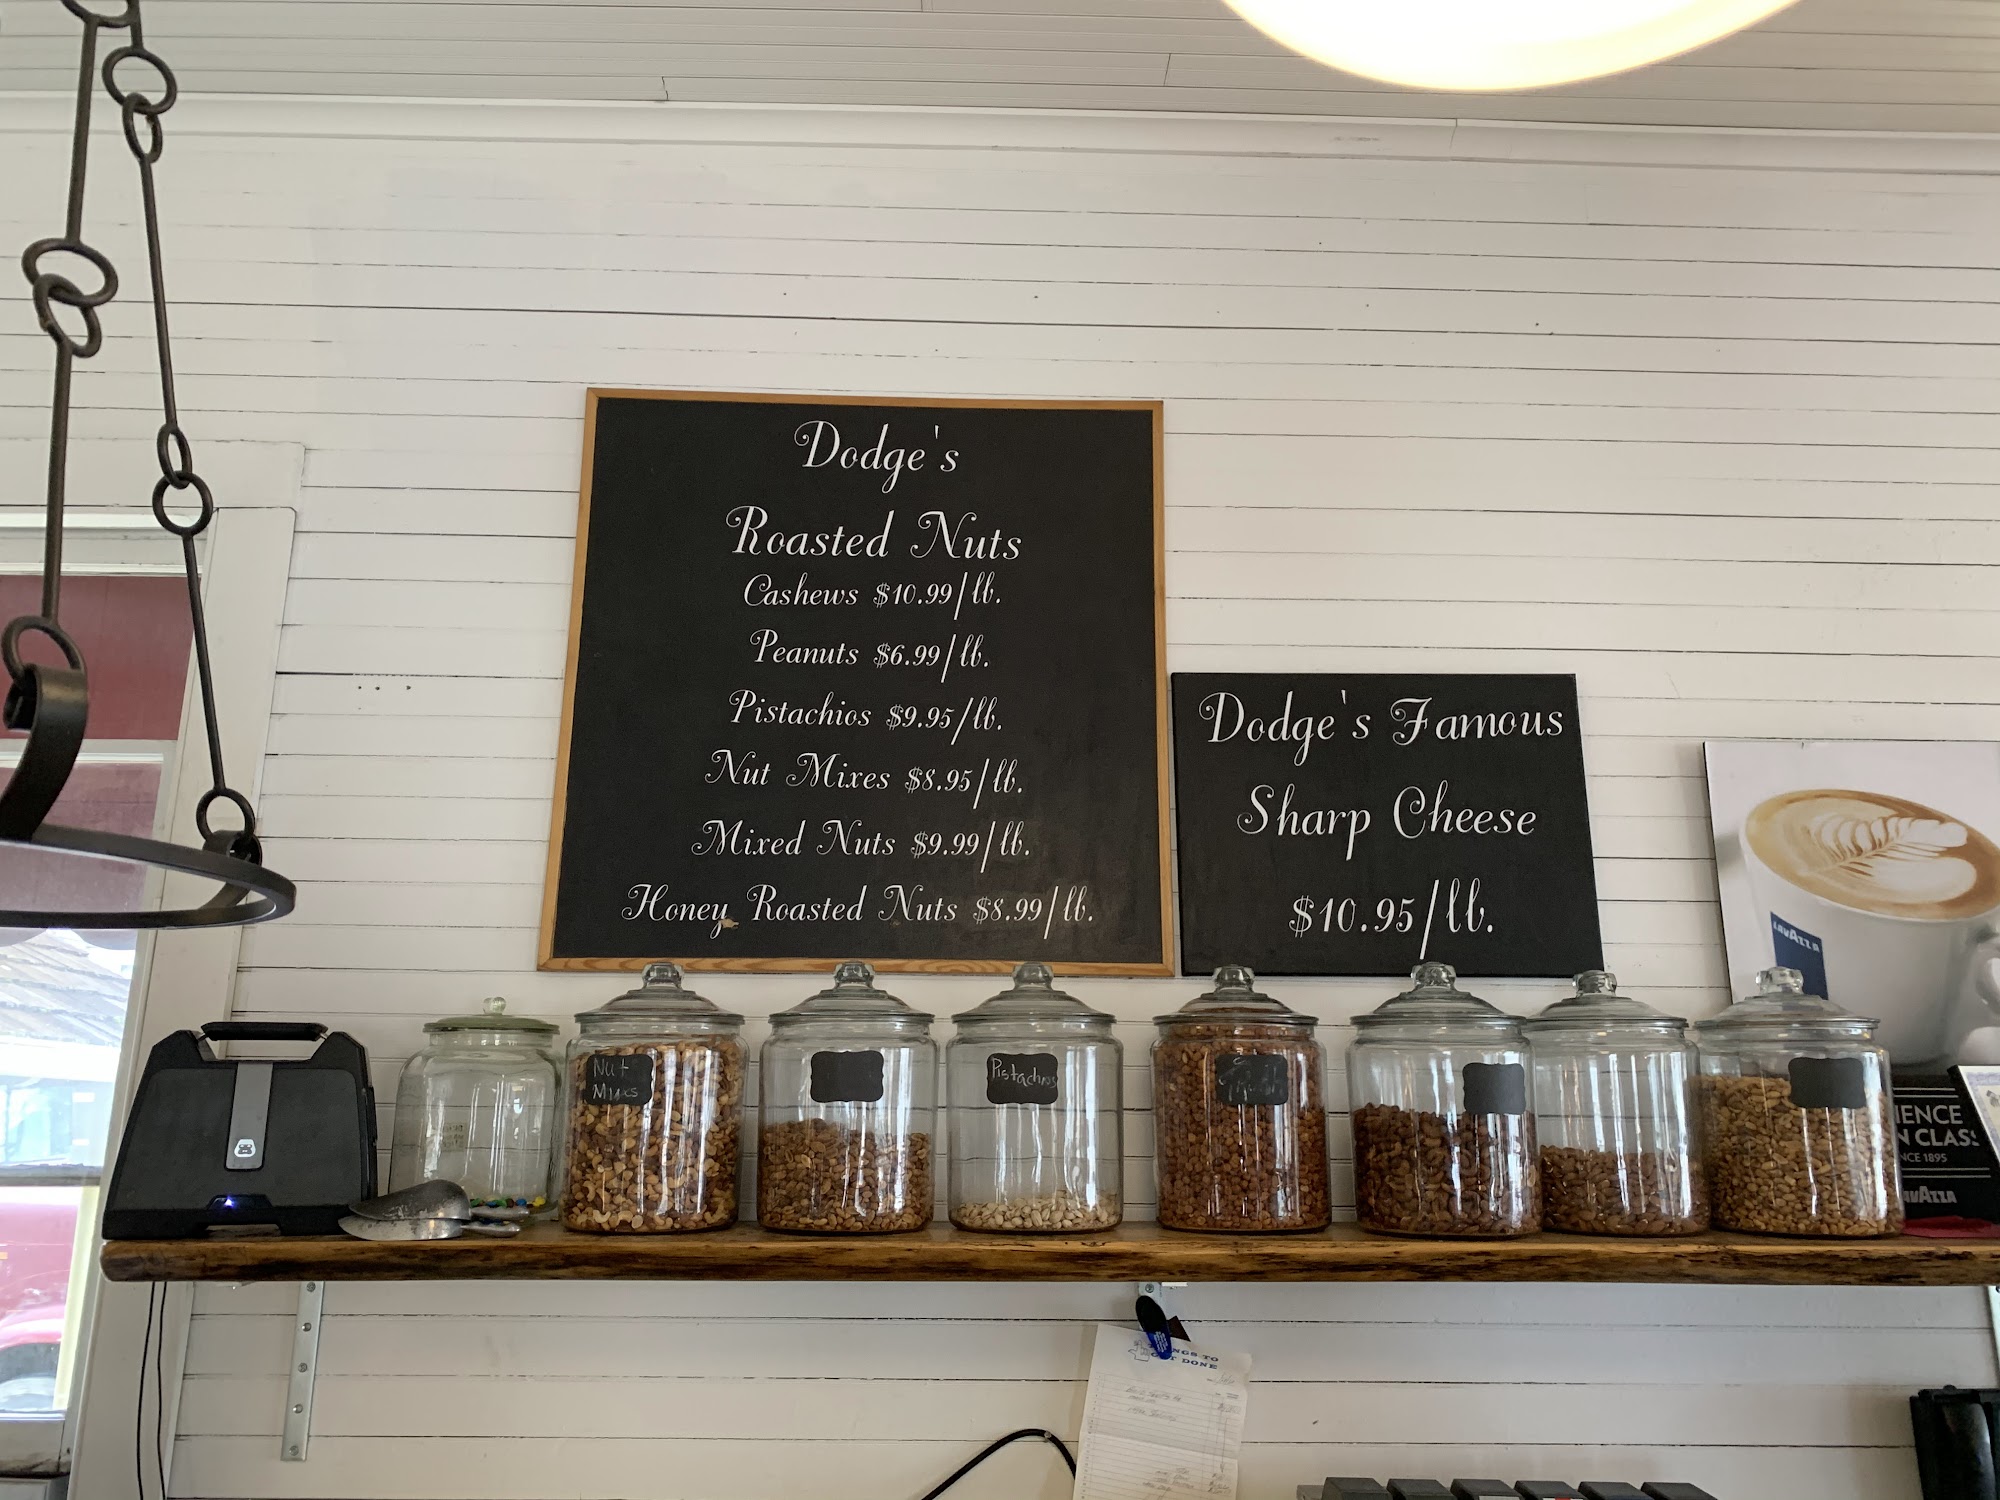 Dodge's
Roasted Nuts
Cashews $10.99/lb.
Peanuts $6.99/lb.
Pistachios $9.95/lb.
Nut Mixes $8.95/lb.
Mixed Nuts $9.99/lb.
Honey Roasted Nuts $8.99/lb.
Dodge's Famous
Sharp Cheese
$10.95/lb.
LAVAZZA
Nut
Mixes
Pistachios
IENCE
N CLASS
NCE 1895
AVAZZA
NGS TO
DONE